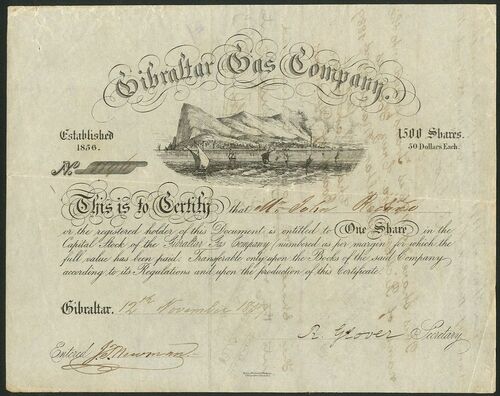 Gibraltar Gas Company.
Established
1856.
1500 Shares.
50 Dollars Each.
No.
This is to Certify that Mr. John
or the registered holder of this Document is entitled to One Share in the
Capital Stock of the Gibraltar Gas Company numbered as per margin for which the
full value has been paid. Transferable only upon the Books of the said Company
according to its Regulations and upon the production of this Certificate.
Gibraltar. 12th November
R. Glover Secretary
Entered Newman